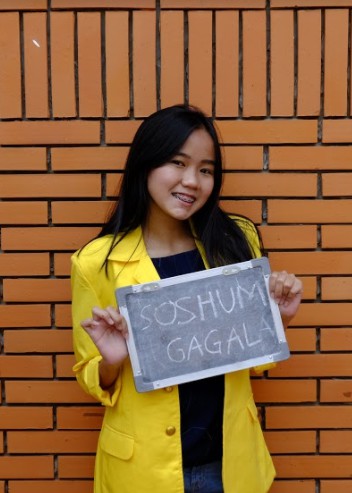 SOSHUM
GAGALA